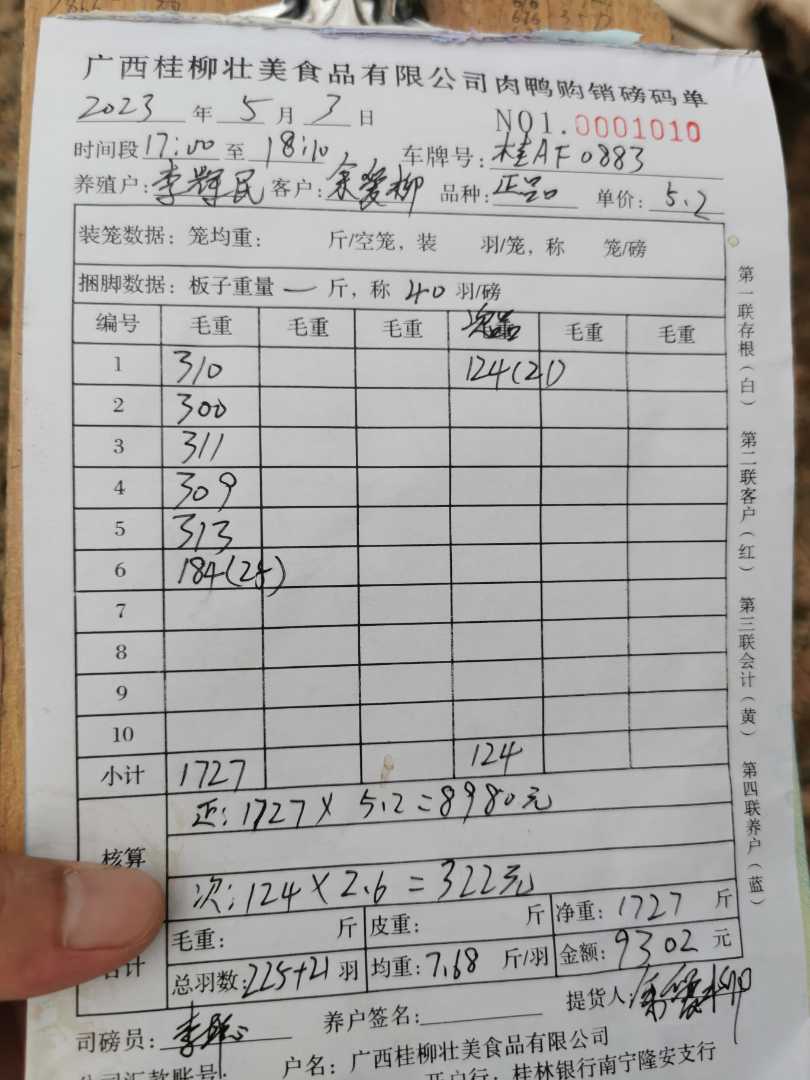 广西桂柳壮美食品有限公司肉鸭购销磅码单
2023 年 5 月 3 日 NO1.0001010
时间段 17:00 至 18:10 车牌号: 桂AF0883
养殖户: 李辉民 客户: 余爱柳 品种: 正品 单价: 5.2
装笼数据: 笼均重: 斤/空笼, 装 羽/笼, 称 笼/磅
捆脚数据: 板子重量 一 斤, 称 40 羽/磅
编号 毛重 毛重 毛重 毛重 毛重
1 310 124(21)
2 300
3 311
4 309
5 313
6 184(25)
7
8
9
10
小计 1727 124
正: 1727 × 5.2 = 8980元
核算
次: 124 × 2.6 = 322元
毛重: 斤 皮重: 斤 净重: 1727 斤
合计
总羽数: 225+21 羽 均重: 7.68 斤/羽 金额: 9302 元
司磅员: 养户签名: 提货人: 余爱柳
公司汇款账号: 户名: 广西桂柳壮美食品有限公司
开户行: 桂林银行南宁隆安支行
第一联存根(白) 第二联客户(红) 第三联会计(黄) 第四联养户(蓝)